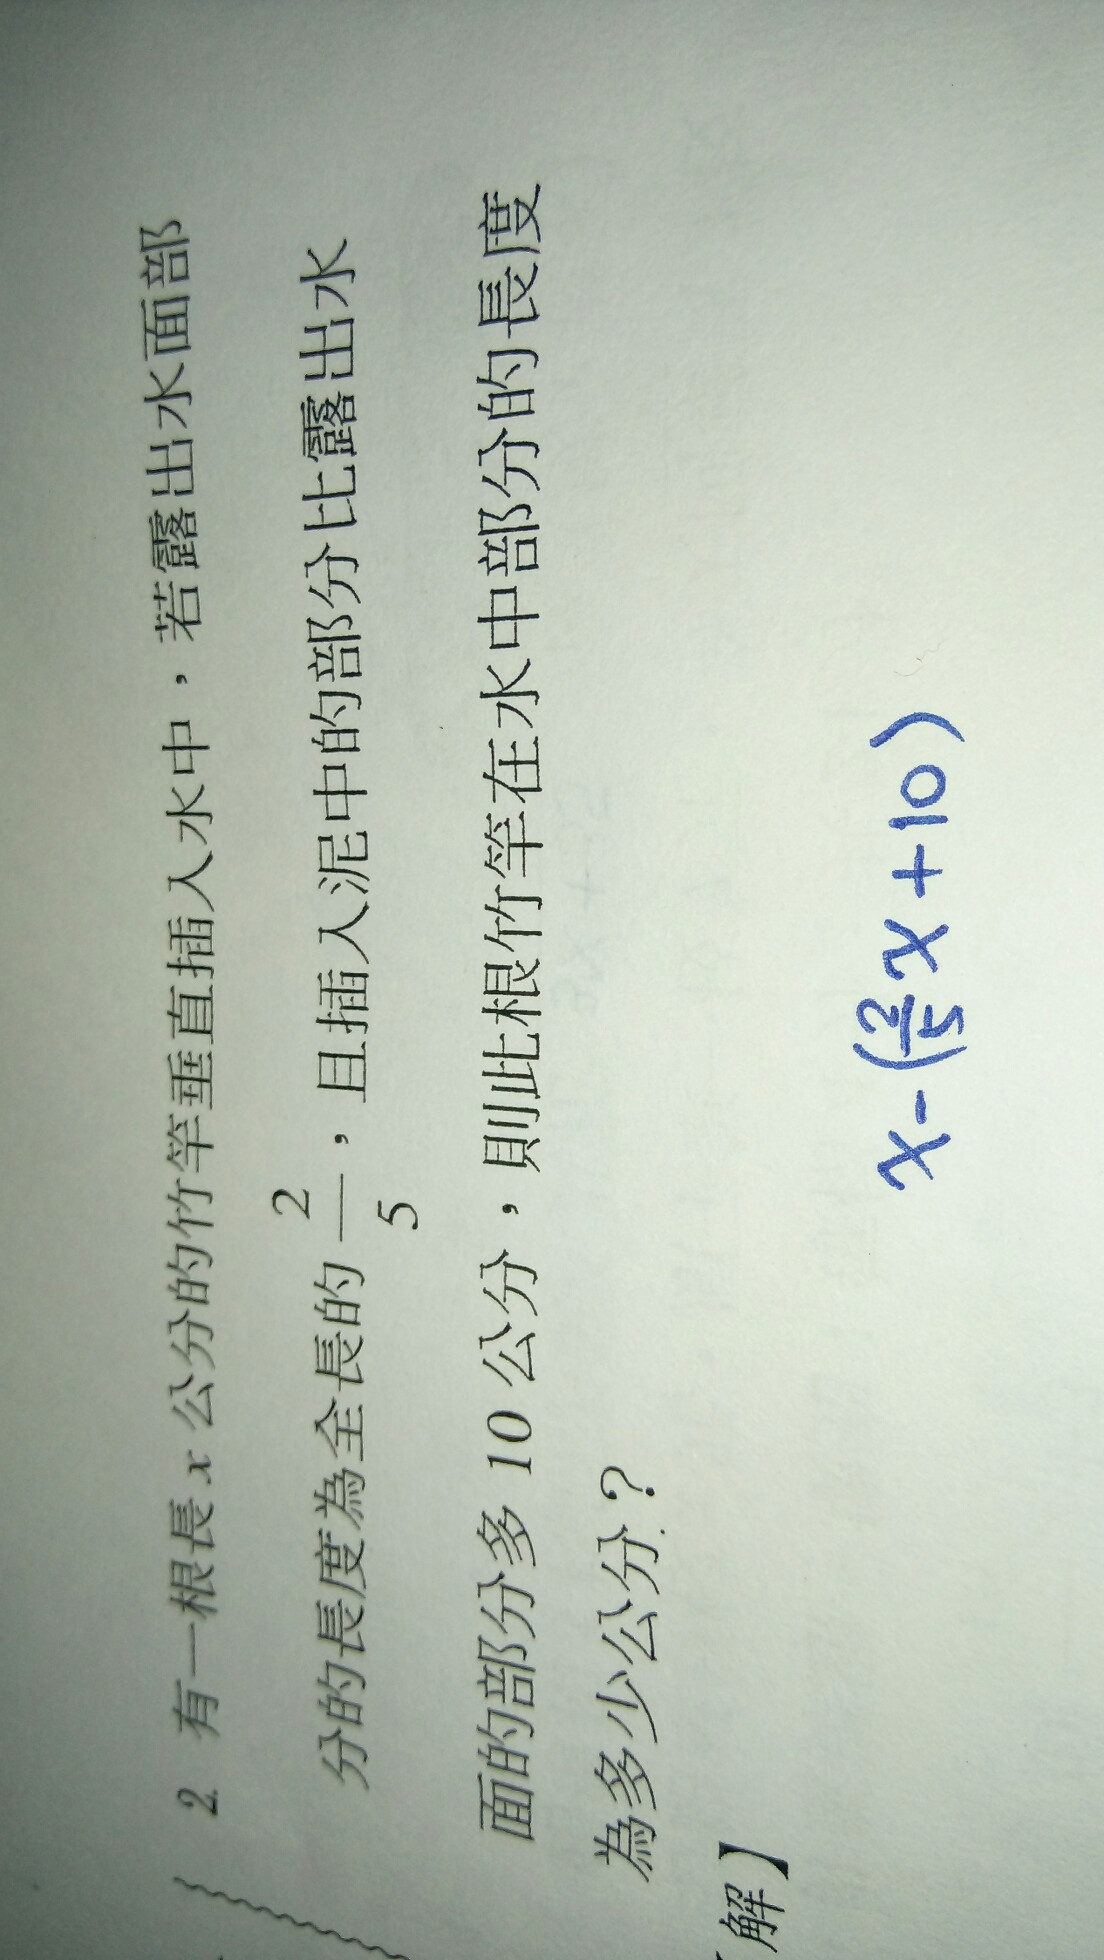 2. 有一根長 x 公分的竹竿垂直插入水中，若露出水面部
分的長度為全長的 2/5，且插入泥中的部分比露出水
面的部分多 10 公分，則此根竹竿在水中部分的長度
為多少公分？
解】
x-(2/5x+10)